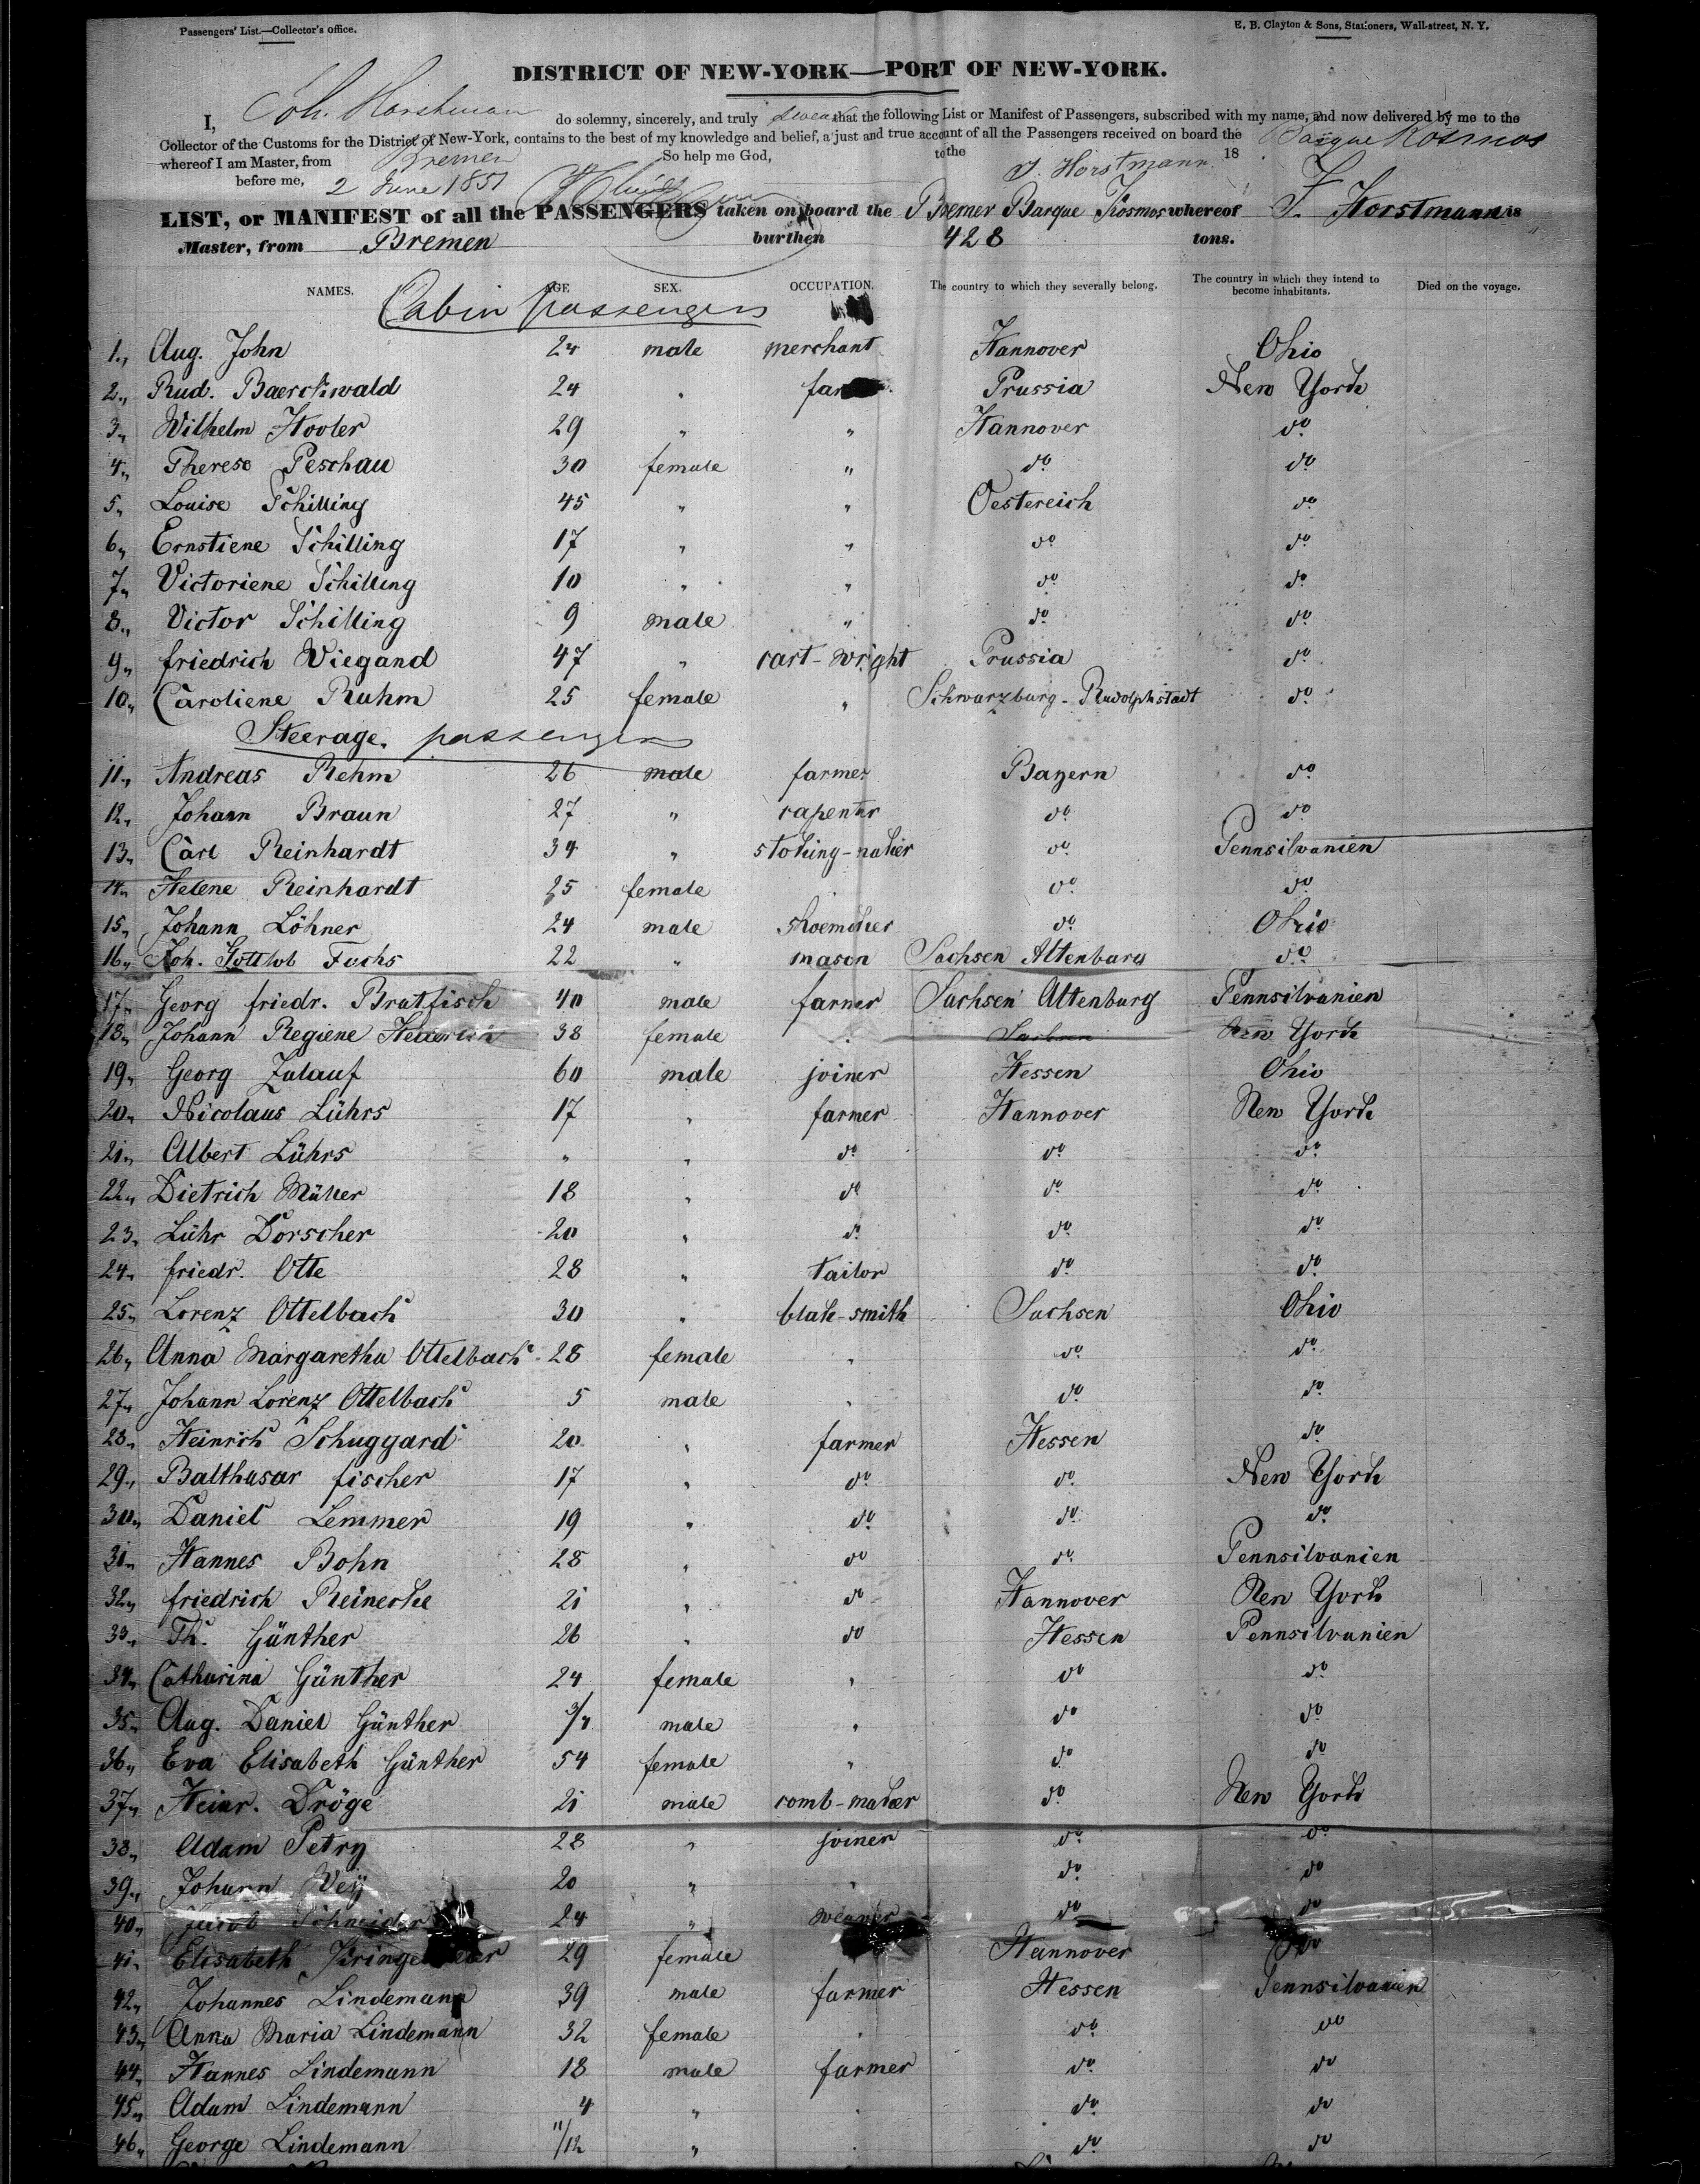 Passengers' List.—Collector's office.
E. B. Clayton & Sons, Stationers, Wall-street, N. Y.
DISTRICT OF NEW-YORK—PORT OF NEW-YORK.
I, Joh. Horstman do solemny, sincerely, and truly swear that the following List or Manifest of Passengers, subscribed with my name, and now delivered by me to the
Collector of the Customs for the District of New-York, contains to the best of my knowledge and belief, a just and true account of all the Passengers received on board the Barque Kosmos
whereof I am Master, from Bremen So help me God, to the J. Horstmann 18
before me, 2 June 1851
LIST, or MANIFEST of all the PASSENGERS taken on board the Bremer Barque Kosmos whereof J. Horstmann is
Master, from Bremen burthen 428 tons.
NAMES. AGE SEX. OCCUPATION. The country to which they severally belong. The country in which they intend to become inhabitants. Died on the voyage.
Cabin passengers
1., Aug. John 24 male merchant Hannover Ohio
2., Rud. Baerckwald 24 " Prussia New York
3., Wilhelm Hovler 29 " " Hannover do
4., Therese Peschau 30 female " do do
5., Louise Schilling 45 " " Oestereich do
6., Ernstiene Schilling 17 " " do do
7., Victoriene Schilling 10 " " do do
8., Victor Schilling 9 male " do do
9., friedrich Wiegand 47 " cart-wright Prussia do
10., Caroliene Ruhm 25 female " Schwarzburg-Rudolphstadt do
Steerage. passengers
11., Andreas Rehm 26 male farmer Bayern do
12., Johann Braun 27 " capenter do do
13., Carl Reinhardt 34 " stoking-maker do Pennsilvanien
14., Helene Reinhardt 25 female do do
15., Johann Löhner 24 male shoemaker do Ohio
16., Joh. Gottlob Fuchs 22 " mason Sachsen Altenburg do
17., Georg friedr. Bratfisch 40 male farmer Sachsen Altenburg Pennsilvanien
18., Johann Regiene 38 female " Sachsen New York
19., Georg Zulauf 60 male joiner Hessen Ohio
20., Nicolaus Lührs 17 " farmer Hannover New York
21., Albert Lührs " " do do do
22., Dietrich Müller 18 " do do do
23., Lühr Dorscher 20 " do do do
24., friedr. Otte 28 " tailor do do
25., Lorenz Ottelbach 30 " blak-smith Sachsen Ohio
26., Anna Margaretha Ottelbach 28 female " do do
27., Johann Lorenz Ottelbach 5 male " do do
28., Heinrich Schuggard 20 " farmer Hessen do
29., Balthasar fischer 17 " do do New York
30., Daniel Lemmer 19 " do do do
31., Hannes Bohn 28 " do do Pennsilvanien
32., friedrich Reinecke 21 " do Hannover New York
33., Th. Günther 26 " do Hessen Pennsilvanien
34., Catharina Günther 24 female " do do
35., Aug. Daniel Günther 3/4 male " do do
36., Eva Elisabeth Günther 54 female " do do
37., Heinr. Dröge 21 male comb-maker do New York
38., Adam Petry 28 " joiner do do
39., Johann Wey 20 " " do do
40., Jacob Schneider 24 " weaver do do
41., Elisabeth 29 female Hannover do
42., Johannes Lindemann 39 male farmer Hessen Pennsilvanien
43., Anna Maria Lindemann 32 female " do do
44., Hannes Lindemann 18 male farmer do do
45., Adam Lindemann 4 " " do do
46., George Lindemann 11/12 " " do do